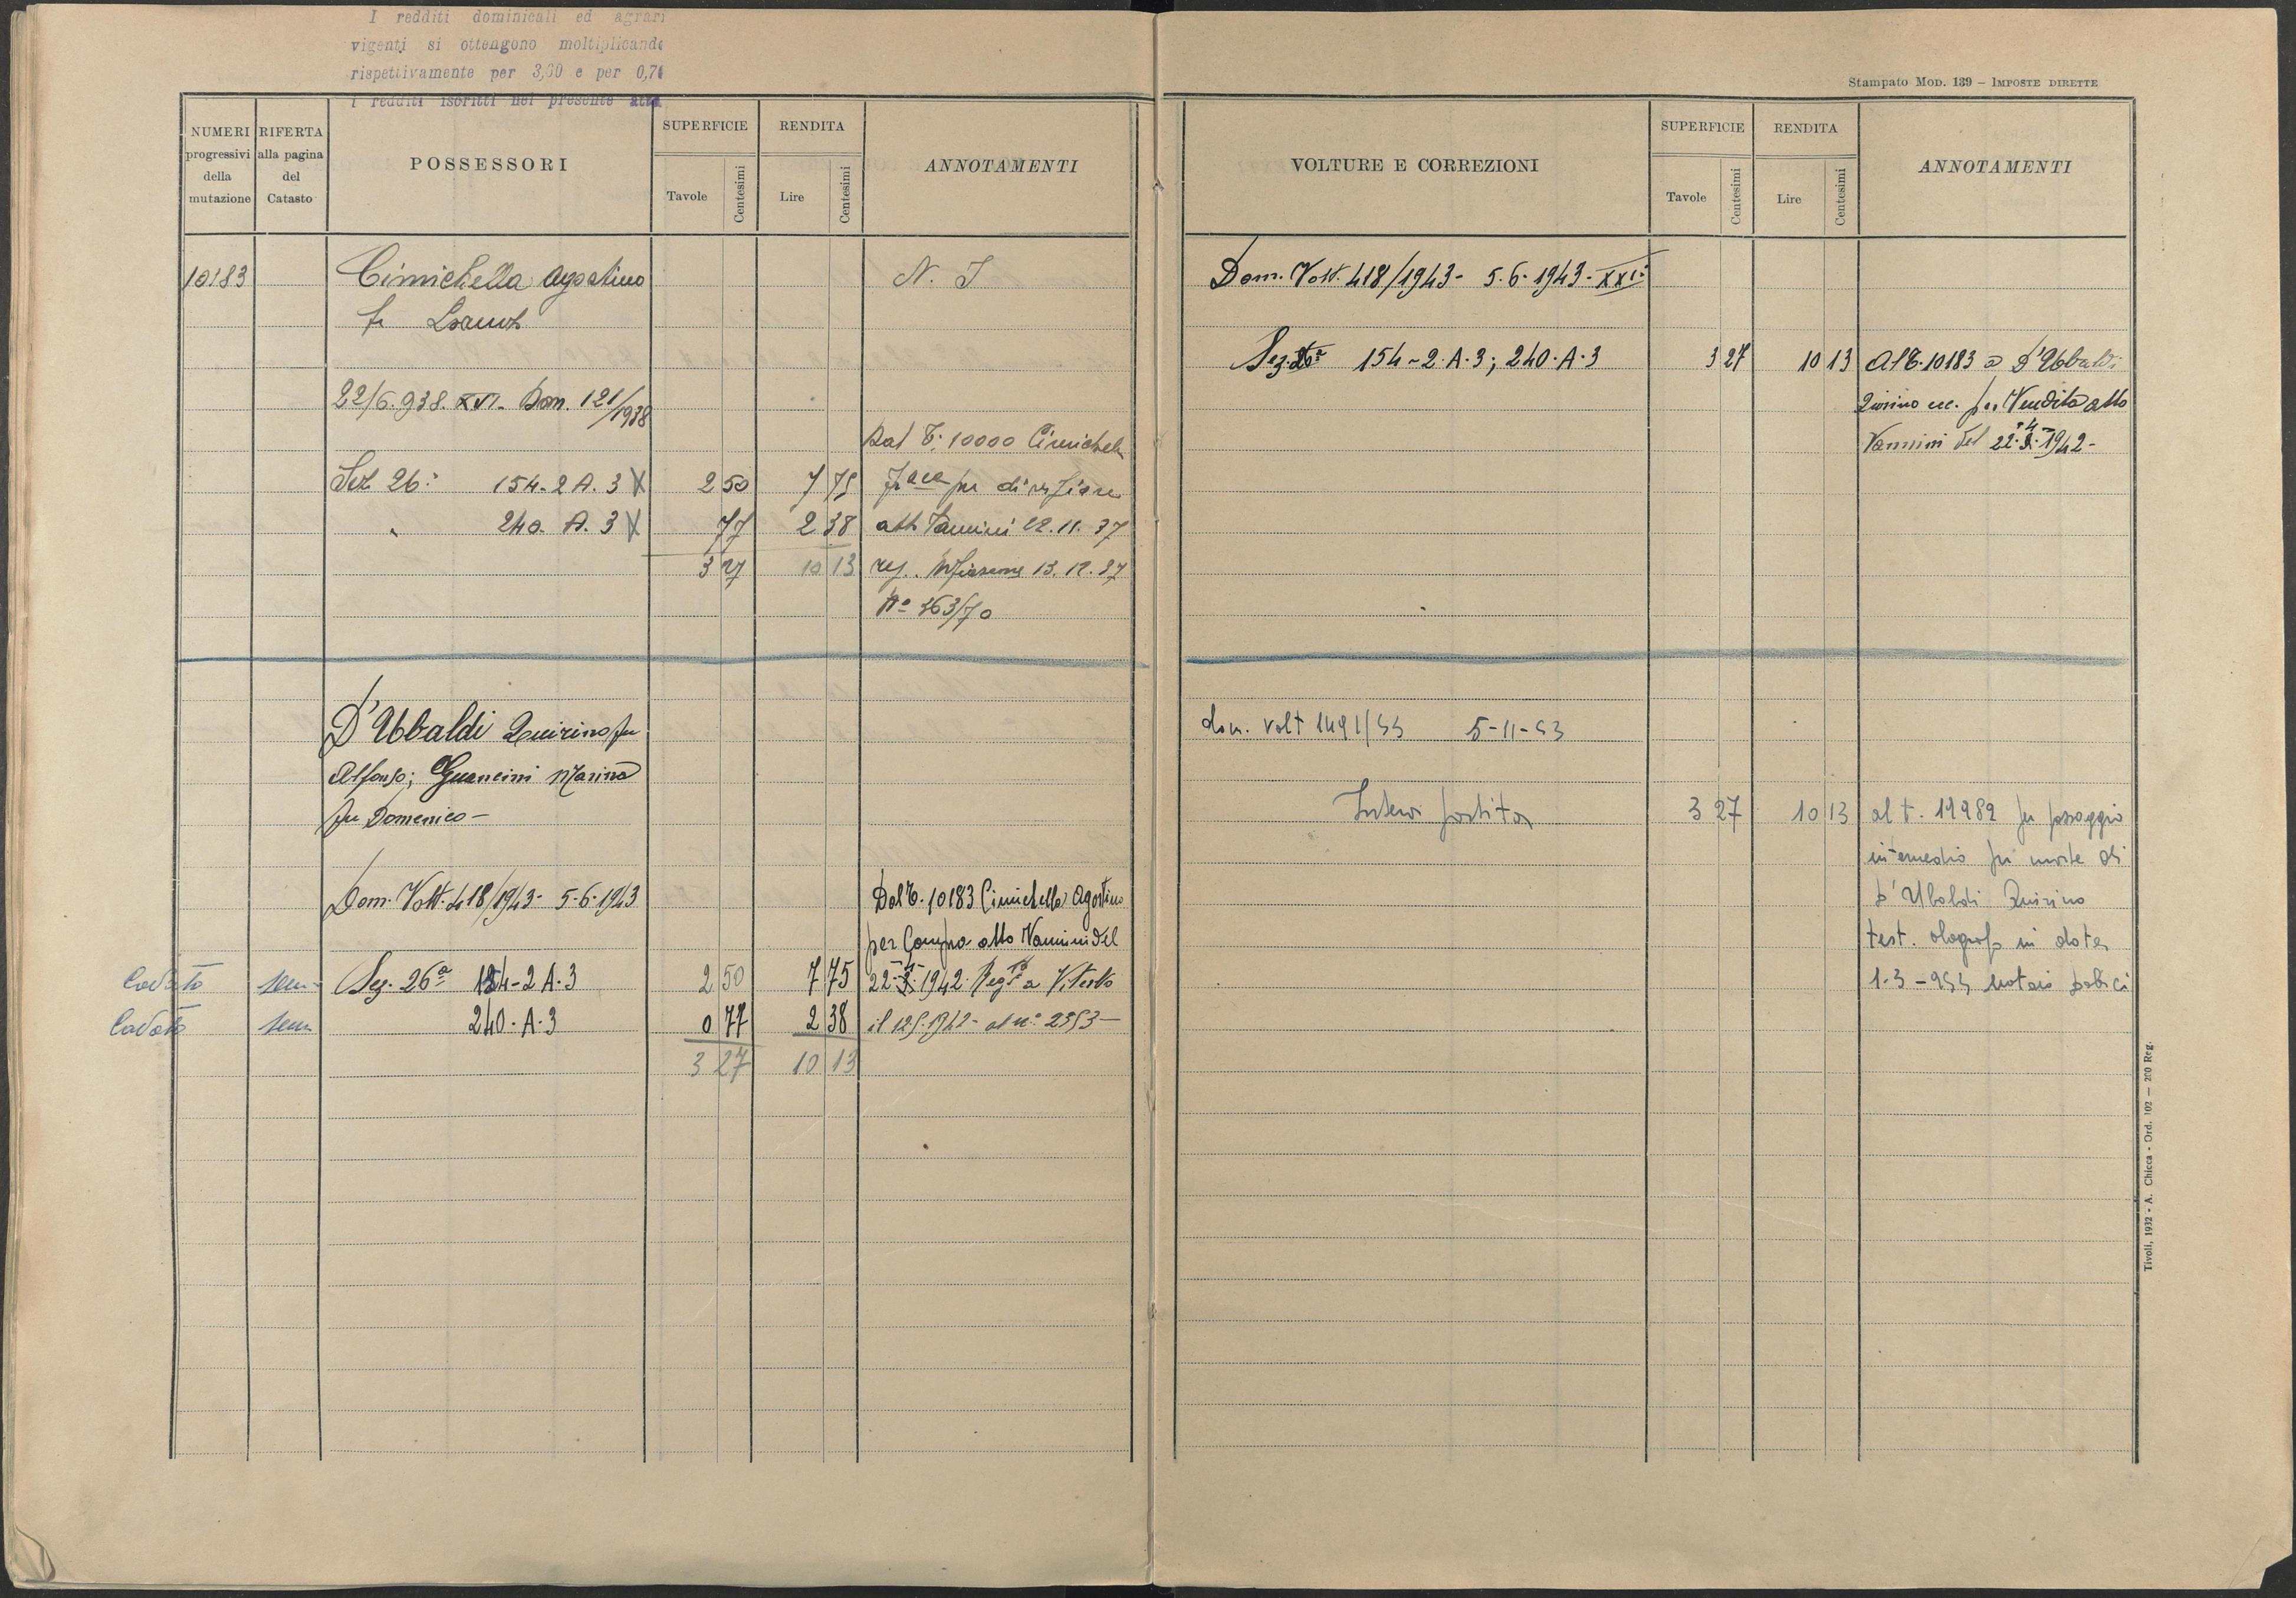 I redditi dominicali ed agrari
vigenti si ottengono moltiplicando
rispettivamente per 3,60 e per 0,70
i redditi iscritti nel presente atto
NUMERI progressivi della mutazione
RIFERTA alla pagina del Catasto
POSSESSORI
SUPERFICIE
Tavole Centesimi
RENDITA
Lire Centesimi
ANNOTAMENTI
10183 Cimichella Agostino N. I
fu
22/6.938. XVI. Dom. 121/1938
Dal T. 10000 Cimichella
Sez 26ª 154-2 A. 3 X 2 50 7 75 per divisione
" 240. A. 3 X 77 2 38 atto Vannini 22.11.37
3 27 10 13 reg. Mfiascone 13.12.37
Nº 363/70
D'Ubaldi Quirino fu
Alfonso; Guancini Marina
fu Domenico -
Dom. Volt. 418/1943 - 5-6-1943 Dal T. 10183 Cimichella Agostino
per Compra atto Vannini del
Cod sem Sez. 26ª 154-2 A.3 2 50 7 75 22-4-1942. Regto a Viterbo
sem 240. A.3 0 77 2 38 il 12.5.1942 - al nº 2353 -
3 27 10 13
Stampato Mod. 139 - Imposte dirette
VOLTURE E CORREZIONI
SUPERFICIE
Tavole Centesimi
RENDITA
Lire Centesimi
ANNOTAMENTI
Dom. Volt. 418/1943 - 5.6.1943 - XXI:
Sez. 26ª 154-2.A.3; 240.A.3 3 27 10 13 Al T. 10183 a D'Ubaldi
Quirino ecc. per Vendita atto
Vannini del 22.4.1942 -
dom. volt 1491/53 5-11-53
Intera partita 3 27 10 13 al t. 11982 per passaggio
intermedio per morte di
D'Ubaldi Quirino
test. olografo in data
1-3-953 notaio
Tivoli, 1932 - A. Chicca - Ord. 102 — 200 Reg.